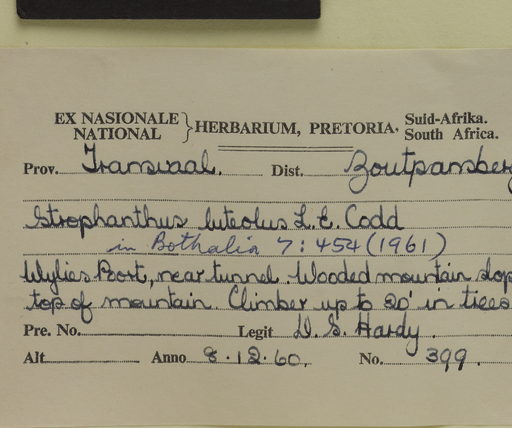 EX NASIONALE NATIONAL } HERBARIUM, PRETORIA. Suid-Afrika. South Africa.
Prov. Transvaal. Dist. Zoutpansberg
Strophanthus luteolus L.E. Codd
in Bothalia 7: 454 (1961)
Wylies Poort, near tunnel. Wooded mountain slop
top of mountain. Climber up to 20' in trees
Pre. No. Legit D. S. Hardy.
Alt. Anno 8.12.60. No. 399.